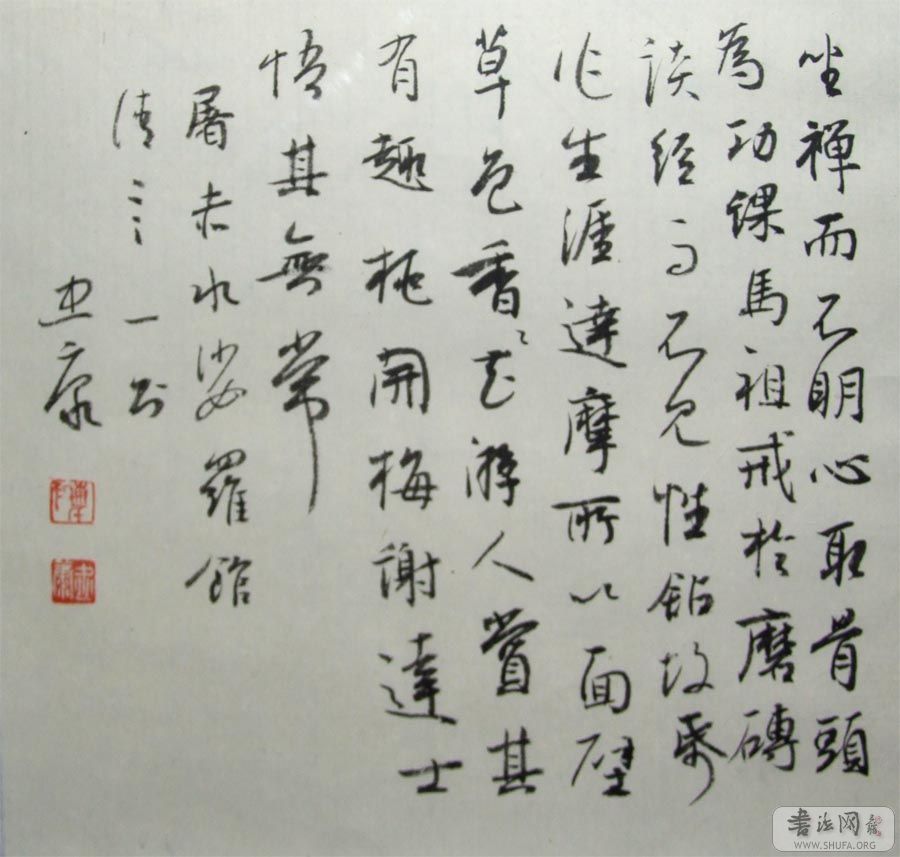 坐禪而不明心取骨頭
為功課馬祖戒於磨磚
談經而不見性鉆故帋
作生涯達摩所以面壁
草色香花游人賞其
有趣桃開梅謝達士
悟其無常
屠赤水娑羅館
清言一
康
書法网
WWW.SHUFA.ORG